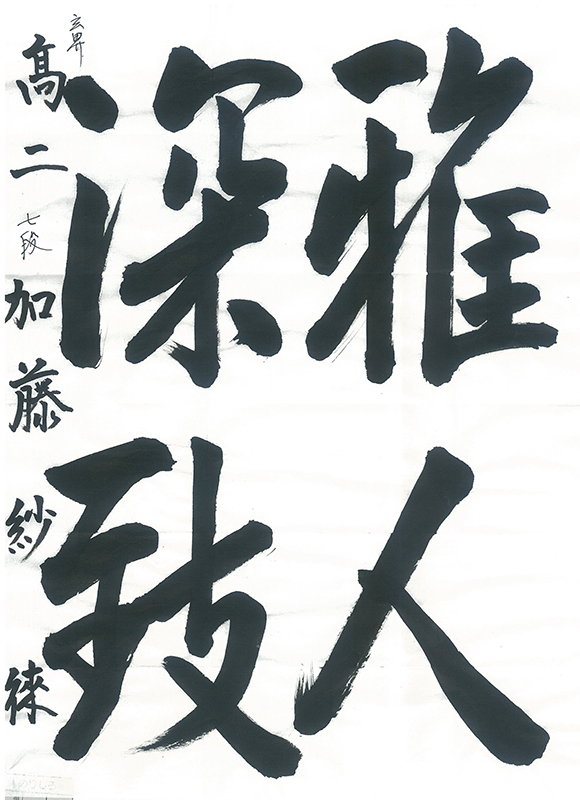 雅人
深致
玄界
高二 七段 加藤紗徠